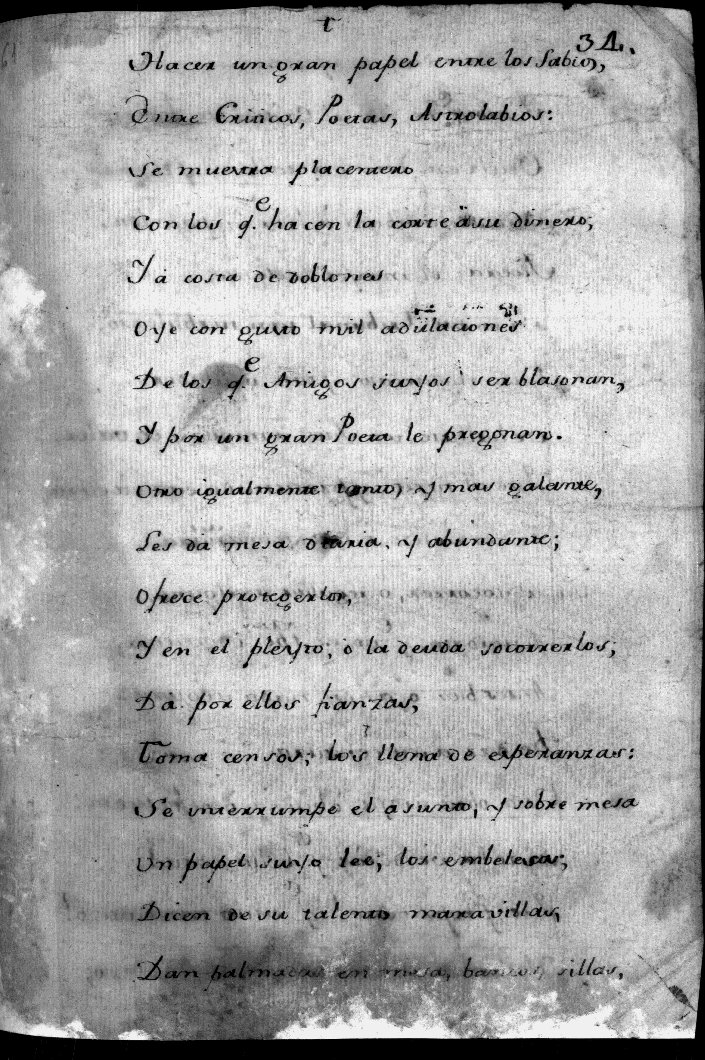 t
34.
Hacer un gran papel entre los Sabios,
Entre Criticos, Poetas, Astrolabios:
Se muestra placentero
Con los q.e hacen la corte äsu dinero;
Y á costa de doblones
Oye con gusto mil adülaciones
De los q.e Amigos suyos ser blasonan,
Y por un gran Poeta le pregonan.
Otro igualmente tonto, y mas galante,
Les dá mesa diaria, y abundante;
Ofrece protegerlos,
Y en el pleyto, ò la deuda socorrerlos;
Da por ellos fianzas,
Toma censos, los llena de esperanzas:
Se interrumpe el asunto, y sobre mesa
Un papel suyo lee; los embelesa;
Dicen de su talento maravillas,
Dan palmadas en mesa, bancos, sillas,